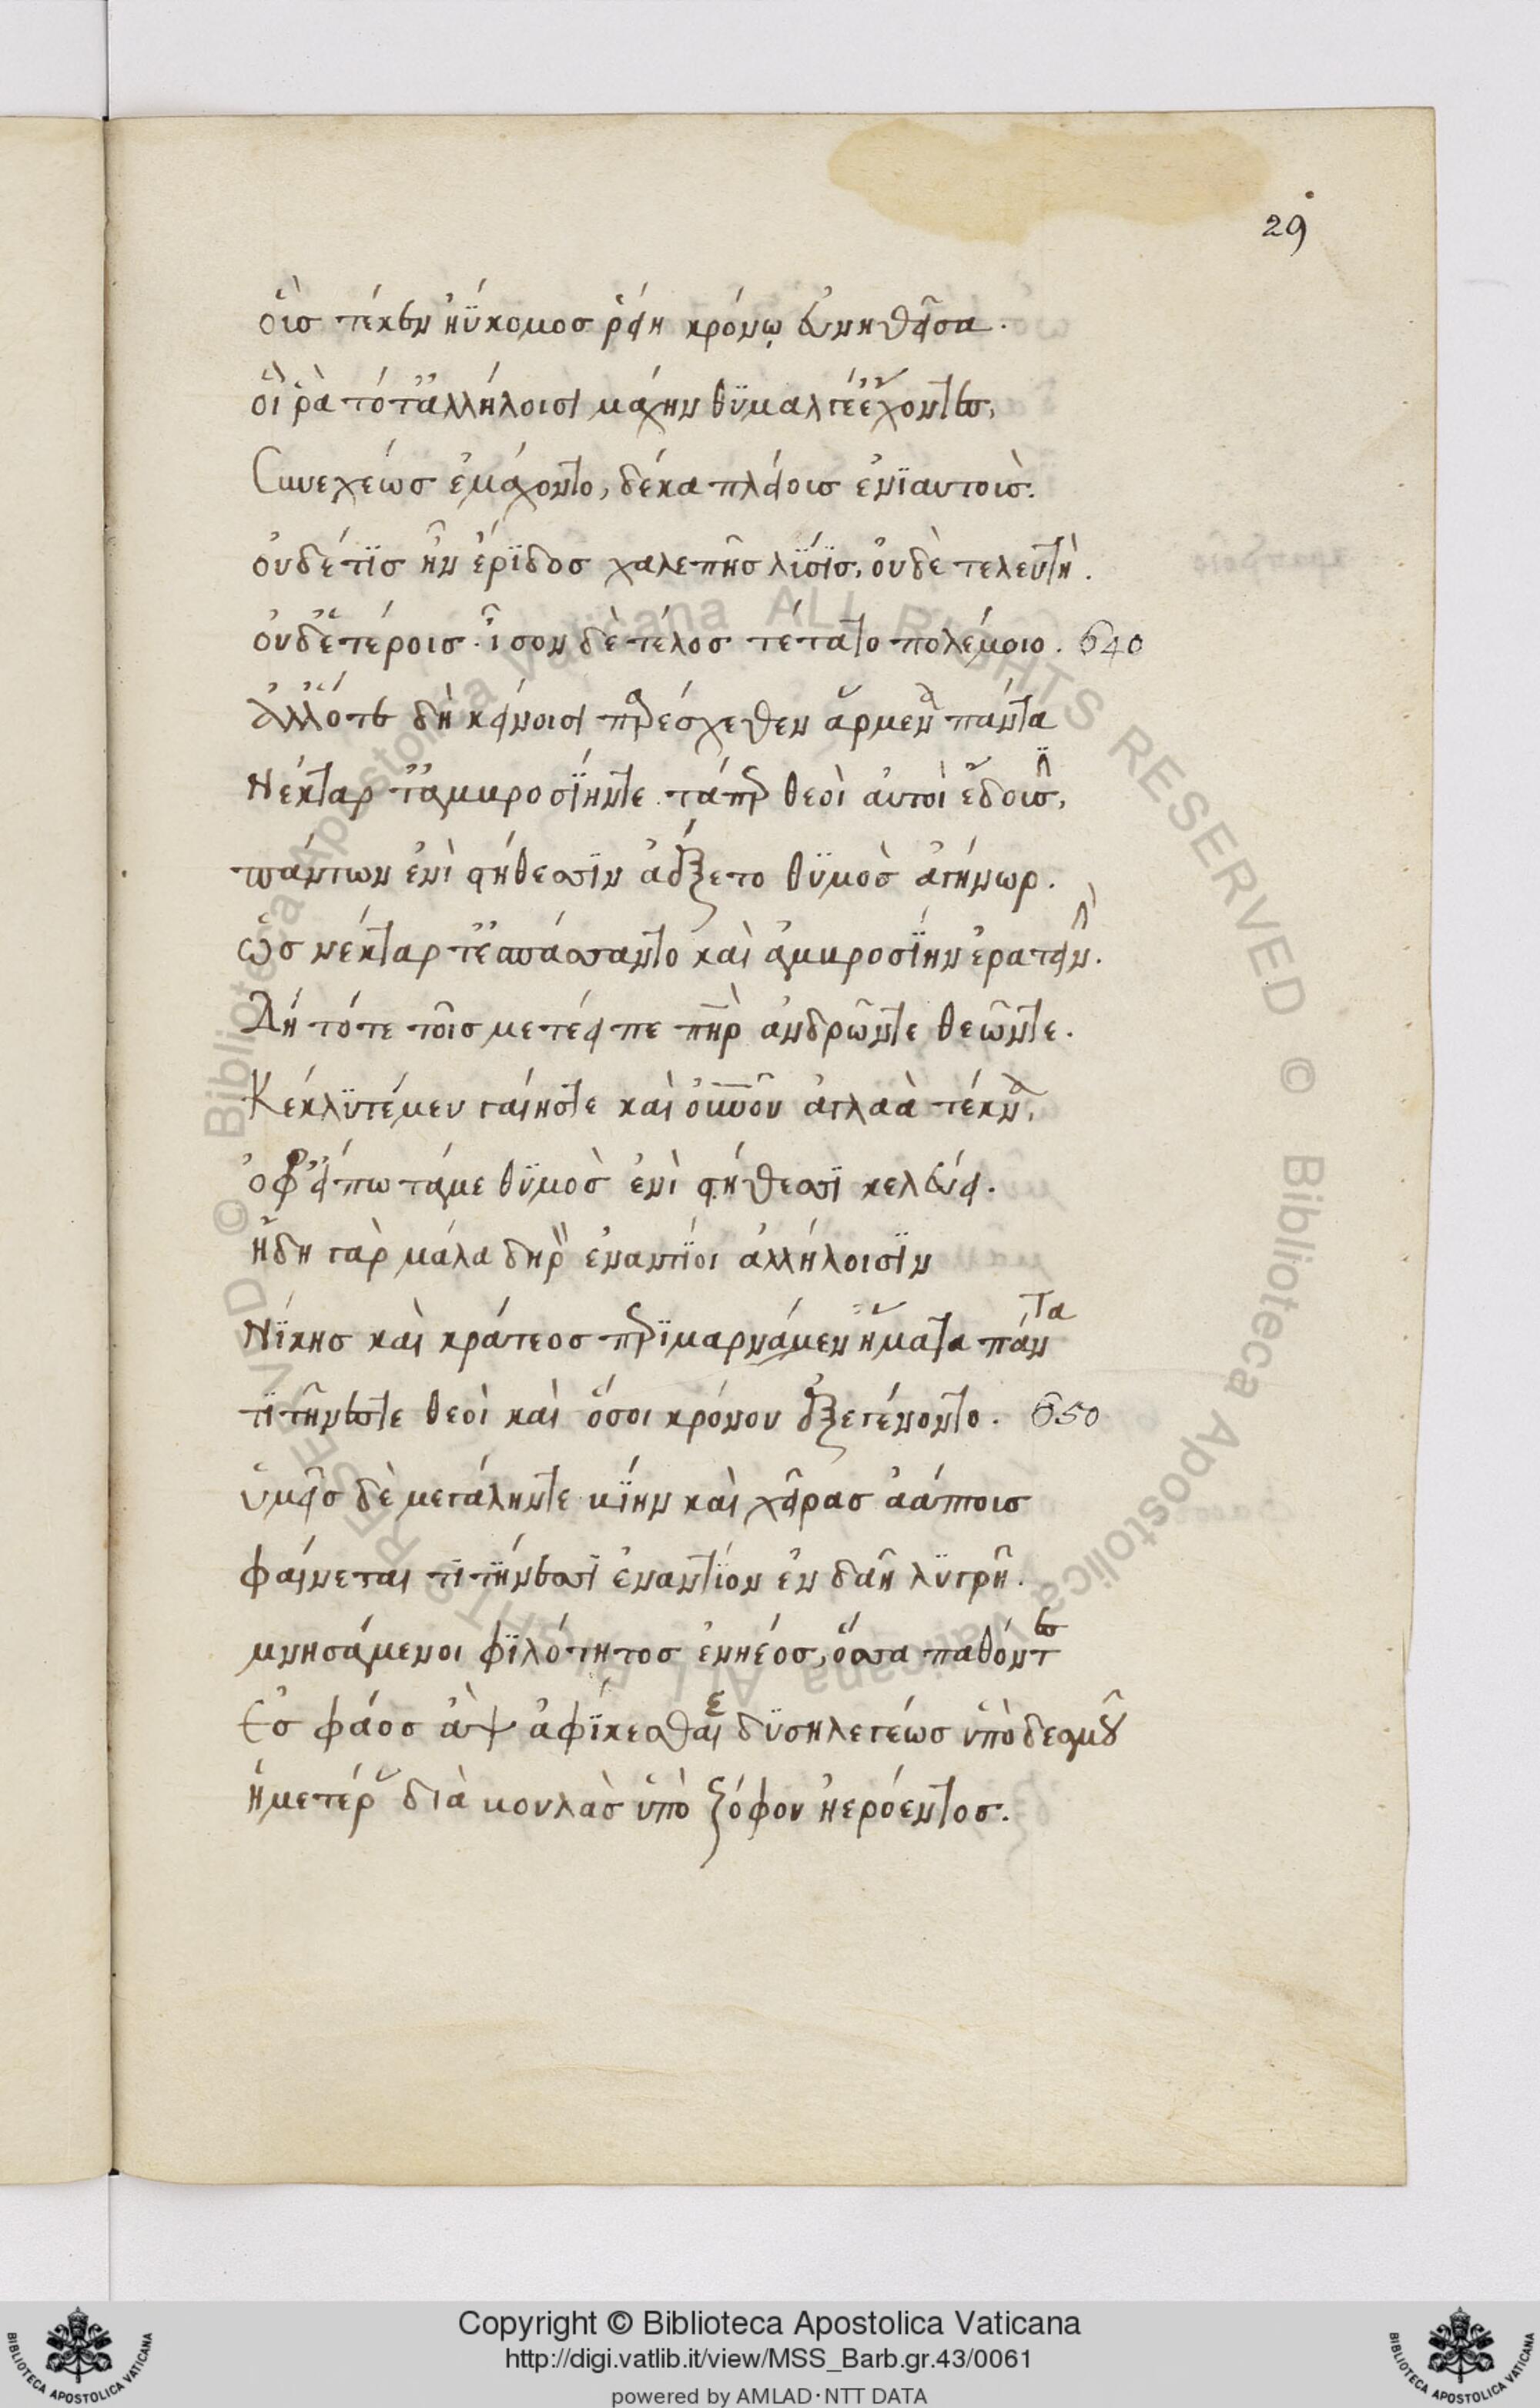 29
οὓς τέκεν ἠΰκομος ῥείη κρόνῳ εὐνηθεῖσα.
οἵ ῥα τότ' ἀλλήλοισι μάχην θυμαλγέ' ἔχοντες,
Συνεχέως ἐμάχοντο, δέκα πλείοις ἐνιαυτοὶς.
οὐδέ τις ἦν ἔριδος χαλεπῆς λύσις, οὐδὲ τελευτὴ.
οὐδετέροις· ἶσον δὲ τέλος τέτατο πολέμοιο. 640
Ἀλλ' ὅτε δὴ κείνοισι παρέσχεθεν ἄρμενα πάντα
Νέκταρ τ' ἀμβροσίην τε τά περ θεοὶ αὐτοὶ ἔδουσι,
πάντων ἐνὶ στήθεσσιν ἀέξετο θυμὸς ἀγήνωρ.
ὡς νέκταρ τ' ἐπάσαντο καὶ ἀμβροσίην ἐρατεινὴν.
Δή τότε τοῖς μετέειπε πατὴρ ἀνδρῶν τε θεῶν τε.
Κέκλυτέ μευ γαίης τε καὶ οὐρανοῦ ἀγλαὰ τέκνα,
ὄφρ' εἴπω τά με θυμὸς ἐνὶ στήθεσσι κελεύει.
ἤδη γὰρ μάλα δηρὸν ἐναντίοι ἀλλήλοισιν
Νίκης καὶ κράτεος περὶ μαρνάμεθ' ἤματα πάντα
τιτῆνές τε θεοὶ καὶ ὅσοι κρόνου ἐξεγένοντο. 650
ὑμεῖς δὲ μεγάλην τε βίην καὶ χεῖρας ἀάπτοις
φαίνεται τιτήνεσσι ἐναντίον ἐν δαῆ λυγρῆ.
μνησάμενοι φιλότητος ἐνηέος, ὅσσα παθόντες
Ἐς φάος ἂψ ἀφίκεσθαι δυσηλεγέως ὑπὸ δεσμοῦ
ἡμετέρου διὰ βουλὰς ὑπὸ ζόφου ἠερόεντος.
Copyright © Biblioteca Apostolica Vaticana
http://digi.vatlib.it/view/MSS_Barb.gr.43/0061
powered by AMLAD·NTT DATA